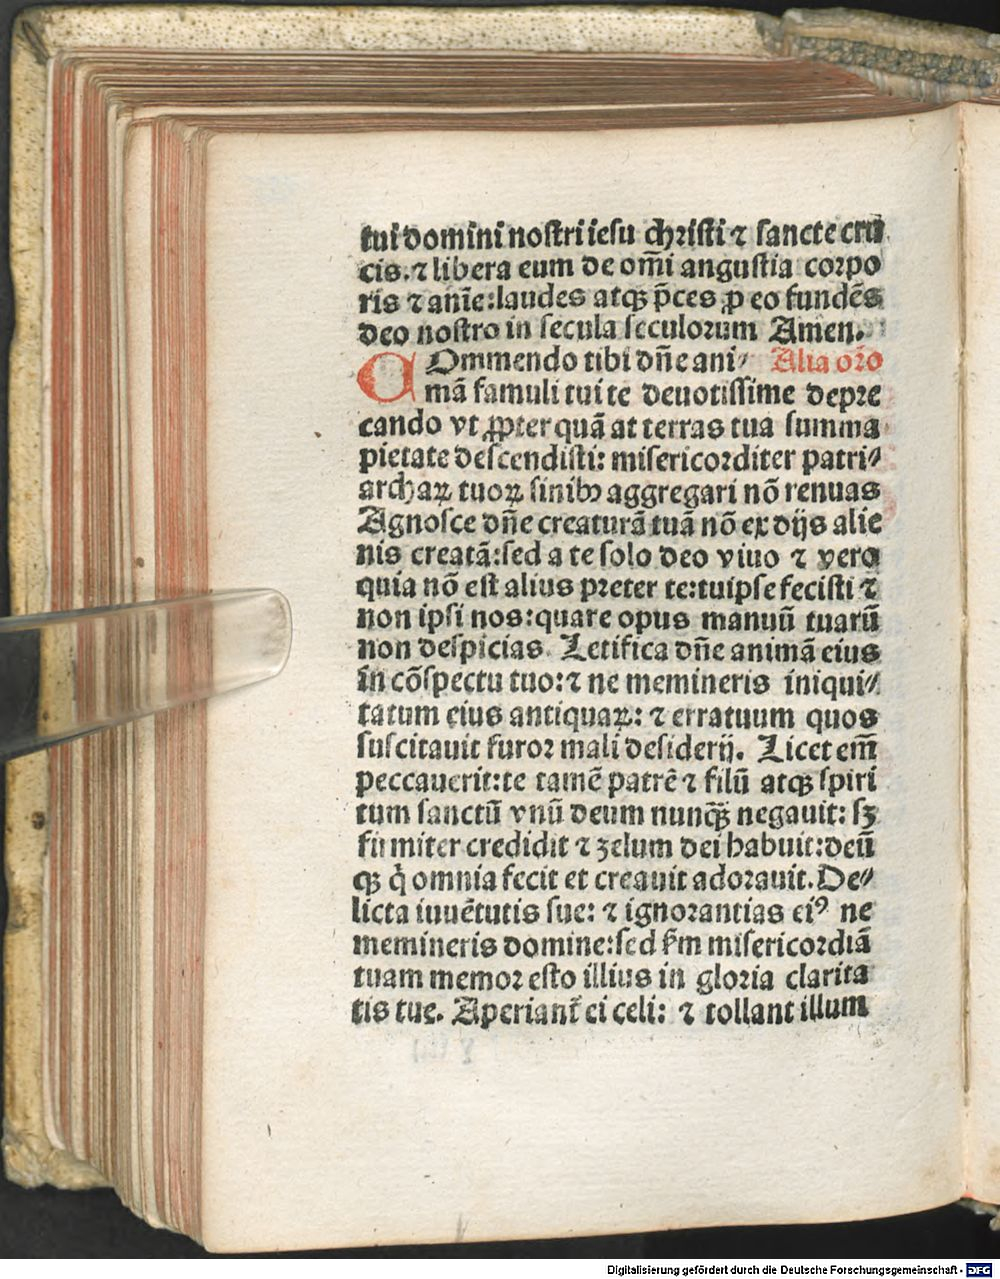 tui domini nostri iesu christi ⁊ sancte cru
cis. ⁊ libera eum de om̄i angustia corpo
ris ⁊ anīe: laudes atqꝫ p̄ces ꝓ eo fundēs
deo nostro in secula seculorum Amen.
COmmendo tibi dn̄e ani⸗ Alia oro
mā famuli tui te deuotissime depre
cando vt ꝓpter quā at terras tua summa
pietate descendisti: misericorditer patri⸗
archaꝝ tuoꝝ sinibꝰ aggregari nō renuas
Agnosce dn̄e creaturā tuā nō ex dijs alie
nis creatā: sed a te solo deo viuo ⁊ vero
quia nō est alius preter te: tu ipse fecisti ⁊
non ipsi nos: quare opus manuū tuarū
non despicias. Letifica dn̄e animā eius
in cōspectu tuo: ⁊ ne memineris iniqui⸗
tatum eius antiquaꝝ: ⁊ erratuum quos
suscitauit furor mali desiderij. Licet em̄
peccauerit: te tamē patrē ⁊ filū atqꝫ spiri
tum sanctū vnū deum nunqꝫ̄ negauit: sꝫ
firmiter credidit ⁊ zelum dei habuit: deū
qꝫ q̇ omnia fecit et creauit adorauit. De⸗
licta iuuētutis sue: ⁊ ignorantias eiꝰ ne
memineris domine: sed ẜm misericordiā
tuam memor esto illius in gloria clarita
tis tue. Aperiant᷑ ei celi: ⁊ tollant illum
Digitalisierung gefördert durch die Deutsche Forschungsgemeinschaft - DFG